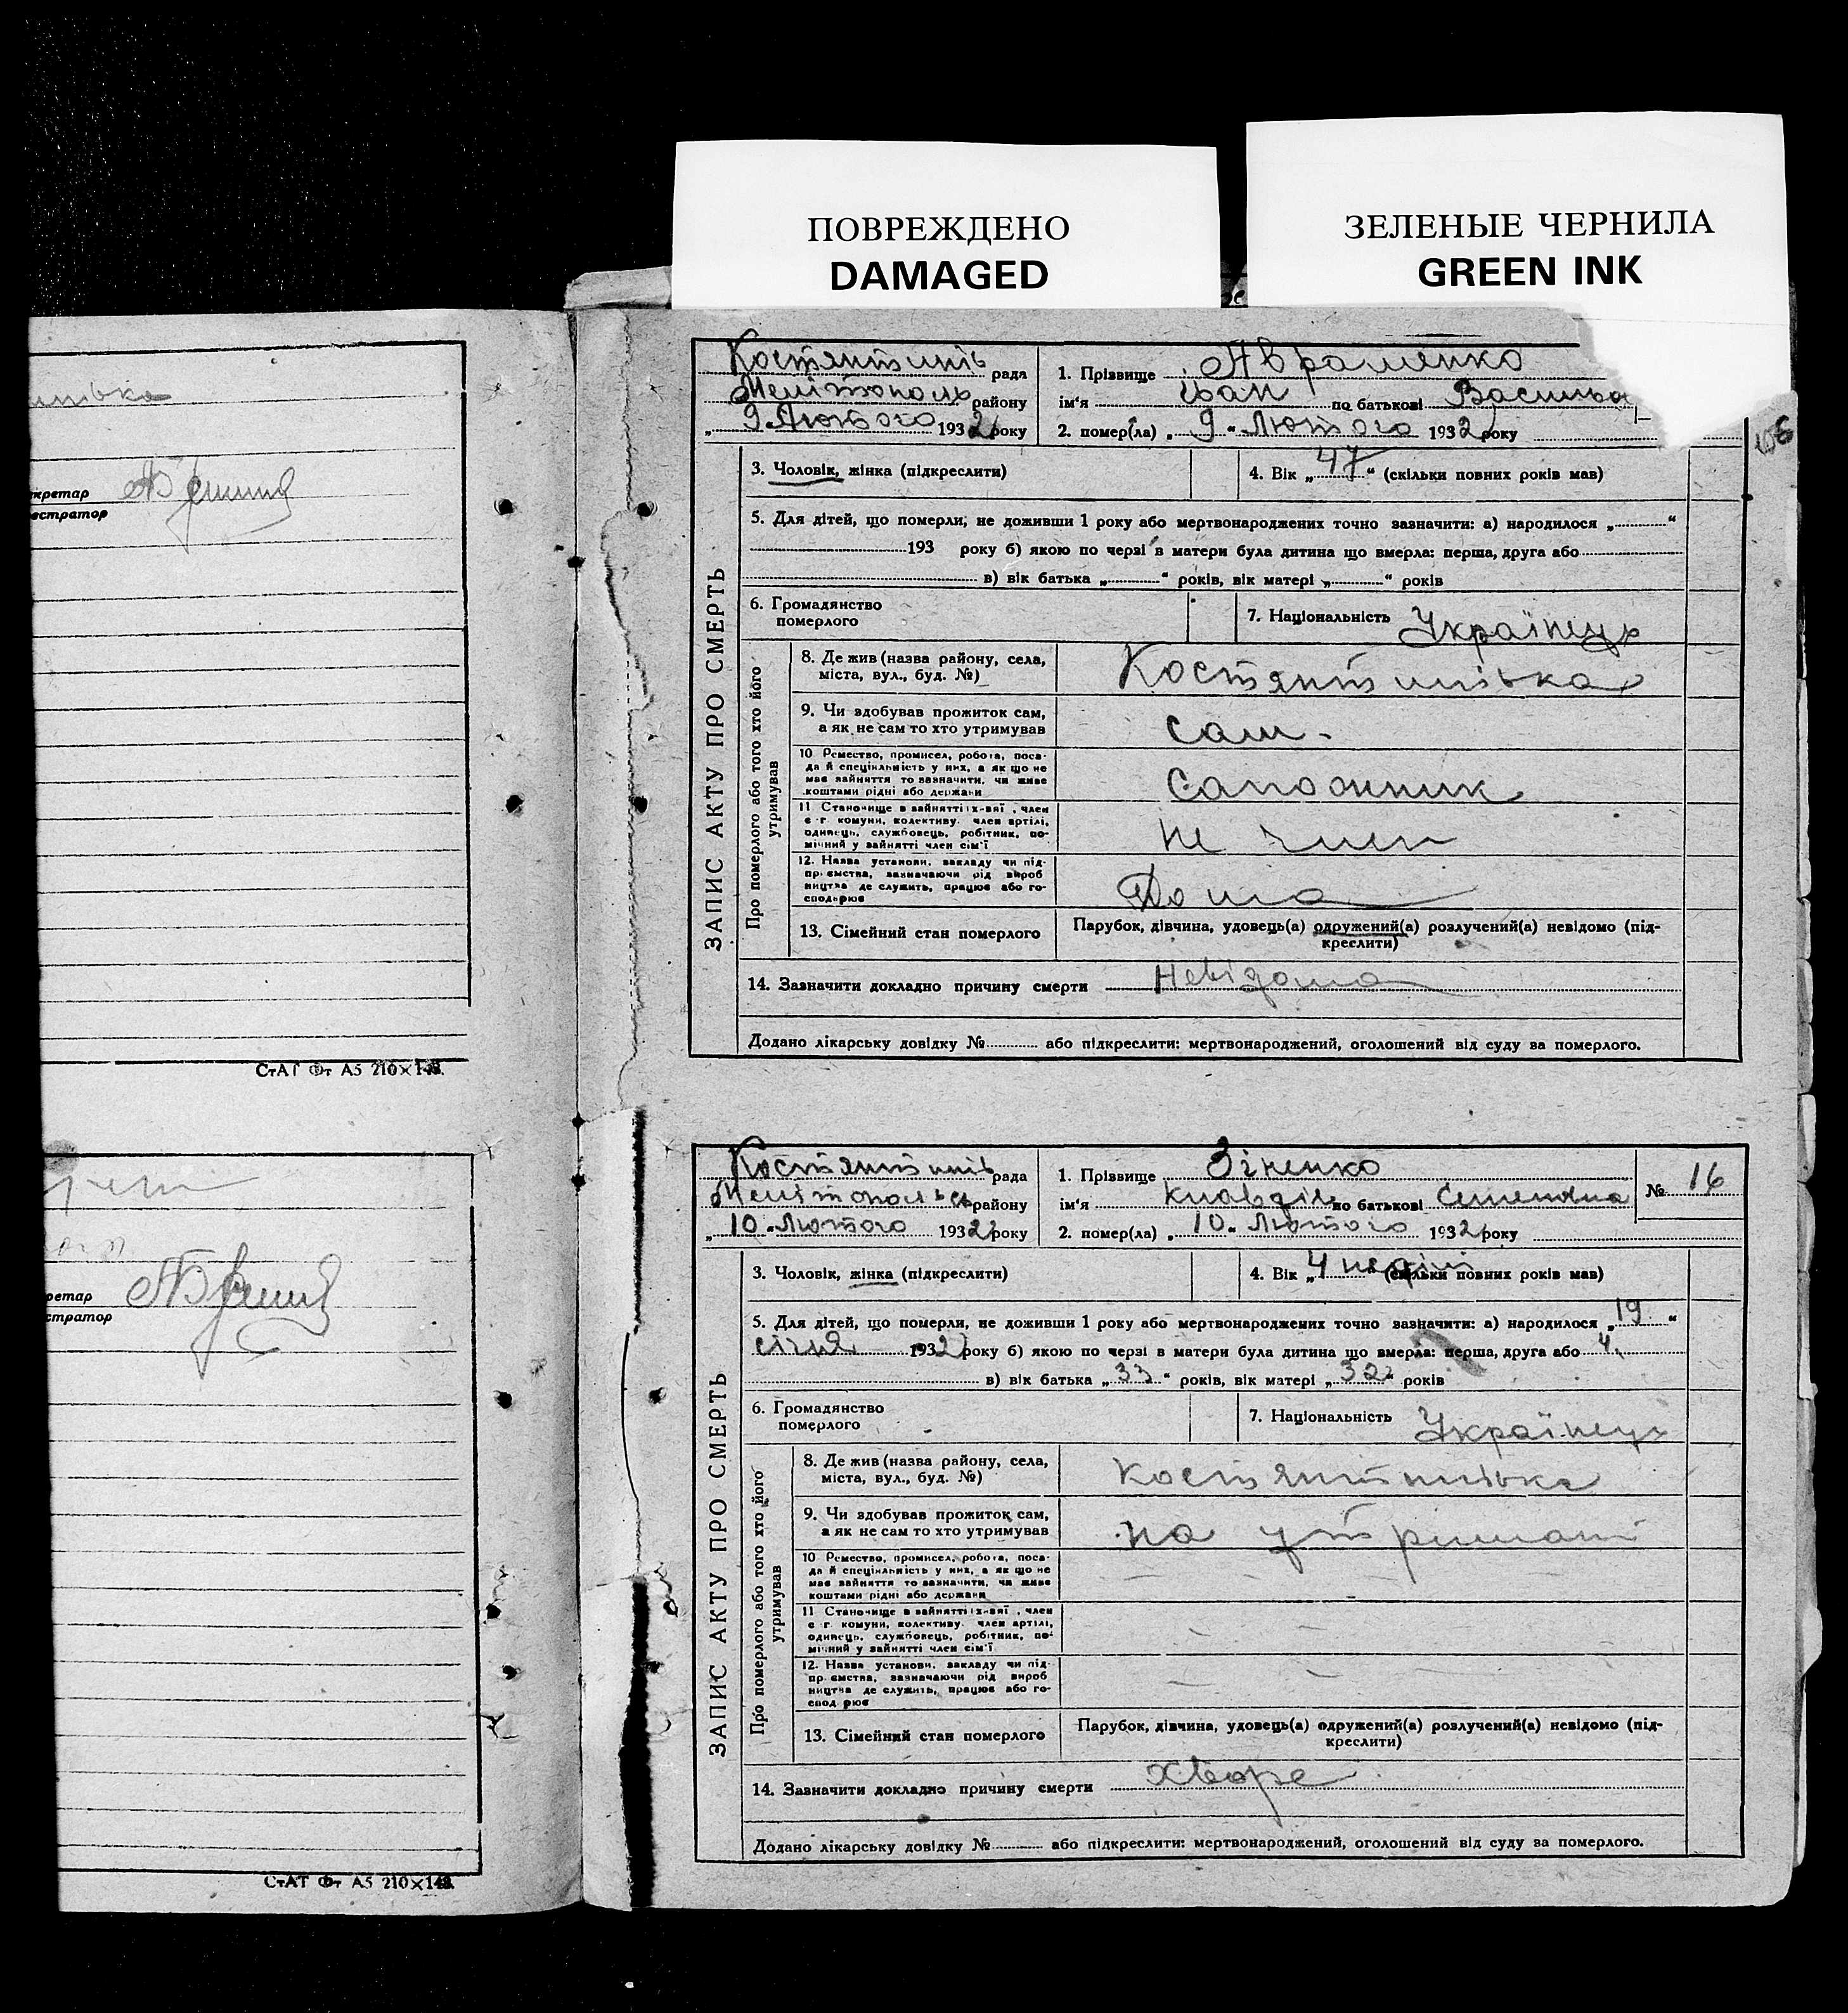 ПОВРЕЖДЕНО
DAMAGED
ЗЕЛЕНЫЕ ЧЕРНИЛА
GREEN INK
кретар
естратор
СтАТ Фт А5 210×148.
ретар
стратор
СтАТ Фт А5 210×148.
ЗАПИС АКТУ ПРО СМЕРТЬ
Костянтинів рада
Мелітополь району
„ 9 Лютого 1932 року
1. Прізвище Авраменко
ім'я Іван по батькові
2. помер(ла) „ 9 " Лютого 1932 року
3. Чоловік, жінка (підкреслити)
4. Вік „ 47 " (скільки повних років мав)
5. Для дітей, що померли, не доживши 1 року або мертвонароджених точно зазначити: а) народилося „ "
193 року б) якою по черзі в матери була дитина що вмерла: перша, друга або
в) вік батька „ " років, вік матері „ " років
6. Громадянство
померлого
7. Національність Українець
Про померлого або того хто його
утримував
8. Де жив (назва району, села,
міста, вул., буд. №)
Костянтинівка
9. Чи здобував прожиток сам,
а як не сам то хто утримував
сам.
10 Ремество, промисел, робота, поса-
да й спеціяльність у них, а як що не
має зайняття то зазначити, чи живе
коштами рідні або держави
Сапожник
11 Становище в зайнятті: х-вяї, член
с.-г. комуни, колективу. член артілі,
одинець, службовець, робітник, по-
мічний у зайнятті член сім'ї
не член
12. Назва установи, закладу чи під-
приємства, зазначаючи рід вироб
ництва де служить, працює або го-
сподарює
Дома
13. Сімейний стан померлого
Парубок, дівчина, удовець(а) одружений(а) розлучений(а) невідомо (під-
креслити)
14. Зазначити докладно причину смерти Невідома
Додано лікарську довідку № або підкреслити: мертвонароджений, оголошений від суду за померлого.
ЗАПИС АКТУ ПРО СМЕРТЬ
Костянтинів рада
району
„ 10 " Лютого 1932 року
1. Прізвище Зіненко
ім'я Клавдія по батькові Семенівна
№ 16
2. помер(ла) „ 10 " Лютого 1932 року
3. Чоловік, жінка (підкреслити)
4. Вік „ 4 неділі " (скільки повних років мав)
5. Для дітей, що померли, не доживши 1 року або мертвонароджених точно зазначити: а) народилося „ 19 "
січня 1932 року б) якою по черзі в матери була дитина що вмерла: перша, друга або 4.
в) вік батька „ 33 " років, вік матері „ 32 " років
6. Громадянство
померлого
7. Національність Українець
Про померлого або того хто його
утримував
8. Де жив (назва району, села,
міста, вул., буд. №)
Костянтинівка
9. Чи здобував прожиток сам,
а як не сам то хто утримував
на утримані
10 Ремество, промисел, робота, поса-
да й спеціяльність у них, а як що не
має зайняття то зазначити, чи живе
коштами рідні або держави
11 Становище в зайнятті: х-вяї, член
с.-г. комуни, колективу. член артілі,
одинець, службовець, робітник, по-
мічний у зайнятті член сім'ї
12. Назва установи, закладу чи під-
приємства, зазначаючи рід вироб
ництва де служить, працює або го-
сподарює
13. Сімейний стан померлого
Парубок, дівчина, удовець(а) одружений(а) розлучений(а) невідомо (під-
креслити)
14. Зазначити докладно причину смерти хворе
Додано лікарську довідку № або підкреслити: мертвонароджений, оголошений від суду за померлого.